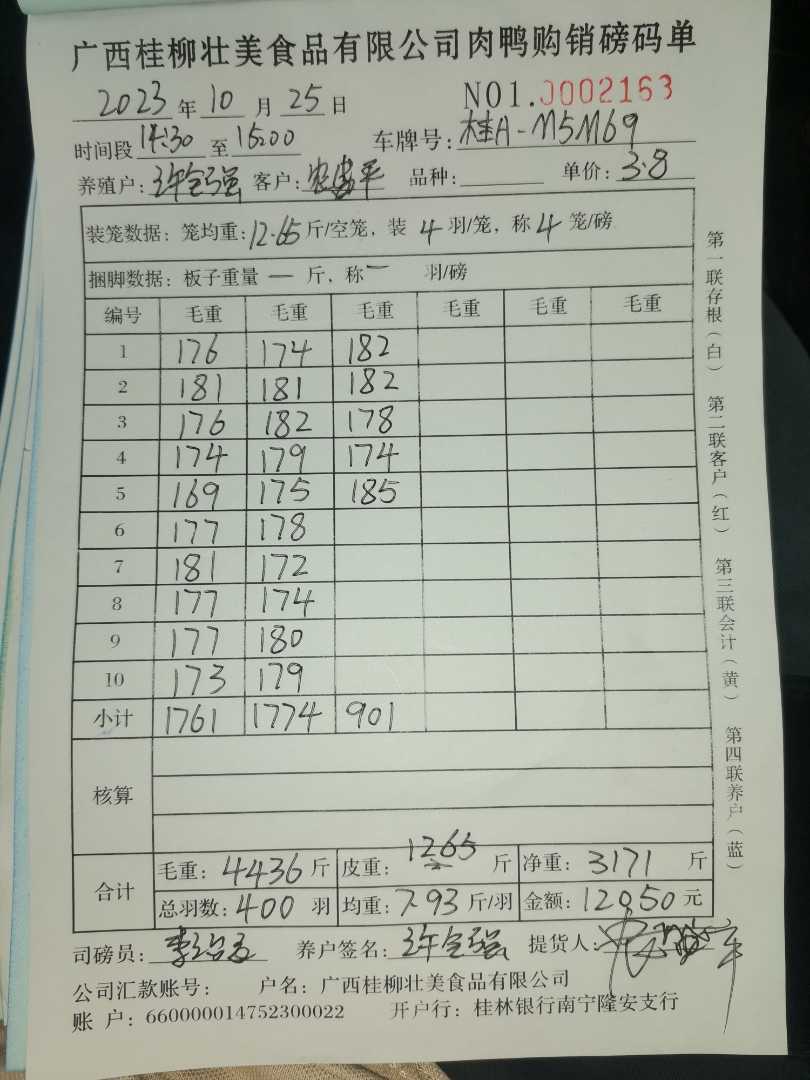 广西桂柳壮美食品有限公司肉鸭购销磅码单
2023年10月25日 NO1.0002163
时间段14:30至15:00 车牌号:桂A-M5M69
养殖户:许全强 客户: 品种: 单价:3.8
装笼数据:笼均重:12.65斤/空笼,装4羽/笼,称4笼/磅
捆脚数据:板子重量—斤,称—羽/磅
编号 毛重 毛重 毛重 毛重 毛重 毛重
1 176 174 182
2 181 181 182
3 176 182 178
4 174 179 174
5 169 175 185
6 177 178
7 181 172
8 177 174
9 177 180
10 173 179
小计 1761 1774 901
核算
合计 毛重:4436斤 皮重:1265斤 净重:3171斤
总羽数:400羽 均重:7.93斤/羽 金额:12050元
司磅员: 养户签名:许全强 提货人:
公司汇款账号: 户名:广西桂柳壮美食品有限公司
账 户:660000014752300022 开户行:桂林银行南宁隆安支行
第一联存根(白) 第二联客户(红) 第三联会计(黄) 第四联养户(蓝)